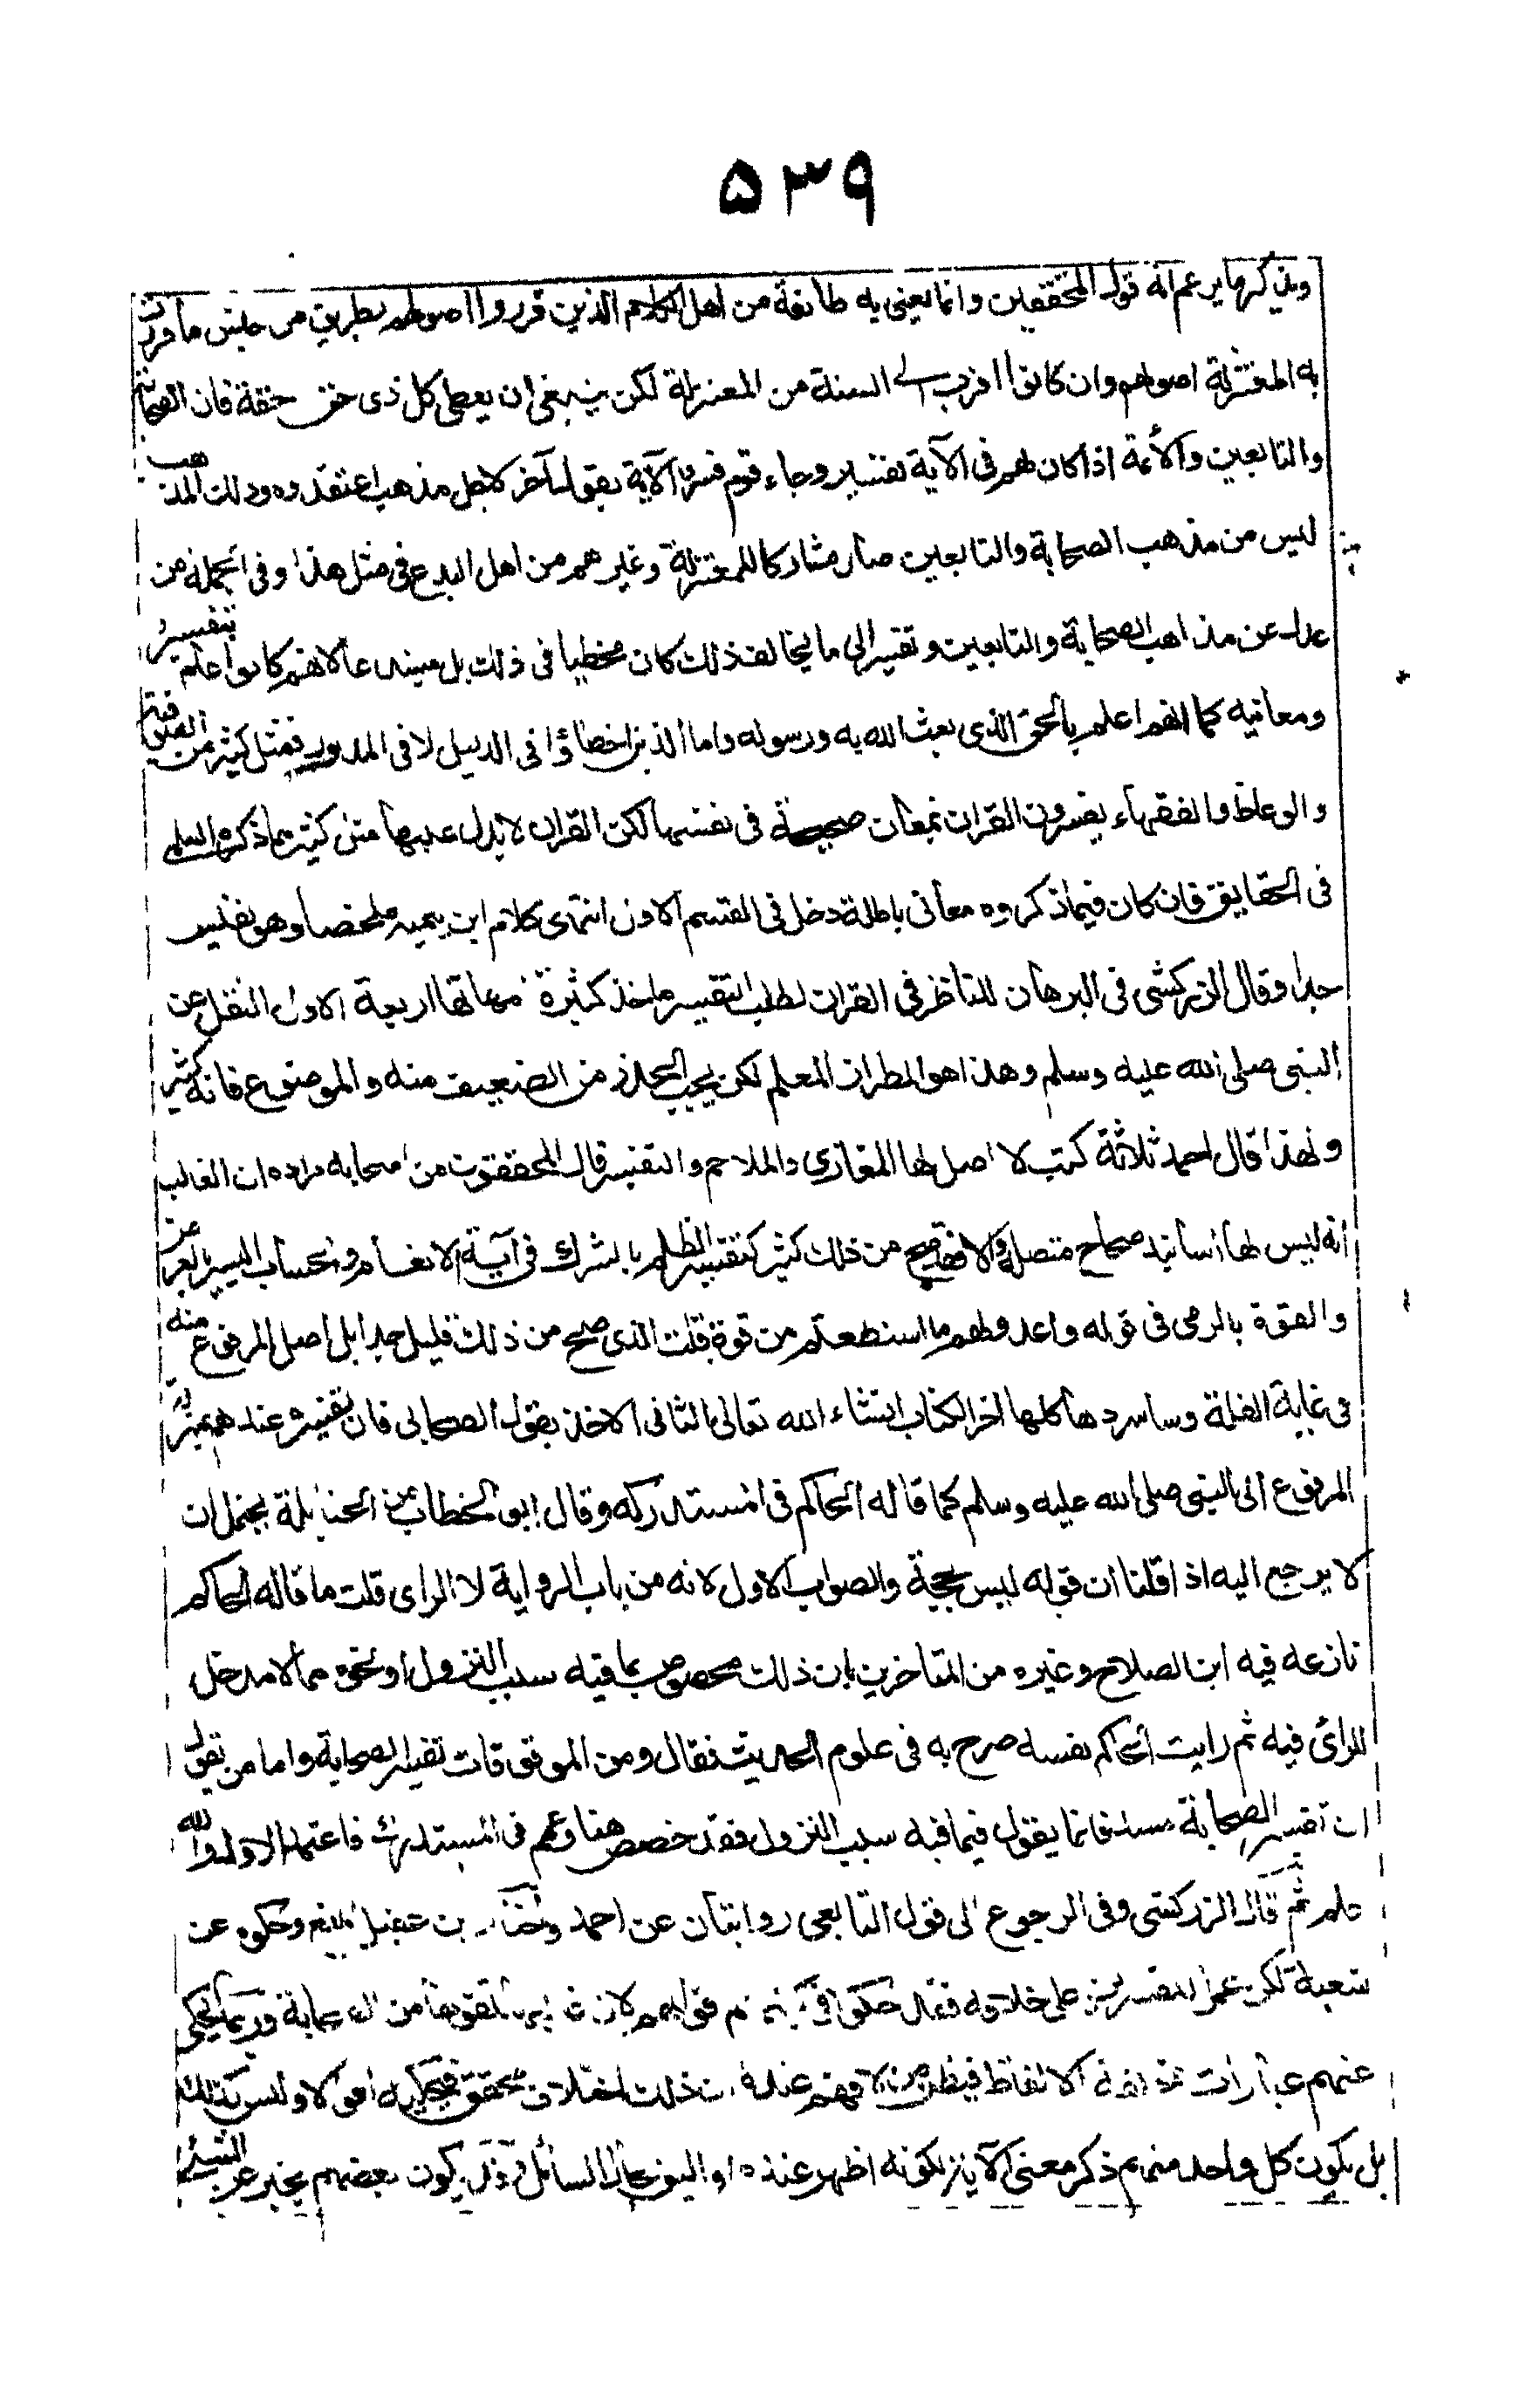 ۵۳۹
ويذكر ما يزعم انه قول المحققين وانما يعنى به طائفة من اهل الكلام الذين قرروا اصولهم بطريق من جنس ما قررت
به المعتزلة اصولهم وان كانوا اقرب الى السنة من المعتزلة لكن ينبغى ان يعطى كل ذى حق حقة فان الصحابة
والتابعين والأئمة اذا كان لهم فى الآية تفسير وجاء قوم فسروا الآية بقول آخر لاجل مذهب اعتقدوه وذلك المذهب
ليس من مذهب الصحابة والتابعين صار مشاركا للمعتزلة وغيرهم من اهل البدع فى مثل هذا وفى الجملة من
عدل عن مذاهب الصحابة والتابعين وتفسيرالى ما يخالف ذلك كان مخطيا فى ذلك بل مبتدعا لانهم كانوا اعلم بتفسيره
ومعانيه كما انهم اعلم بالحق الذى بعث الله به ورسوله واما الذين اخطاؤا فى الدليل لا فى المدلول فمثل كثير من الصوفية
والوعاظ والفقهاء يفسرون القران بمعان صحيحة فى نفسها لكن القران لا يدل عليها مثل كثير مما ذكره السلمى
فى الحقايق فان كان فيما ذكروه معانى باطلة دخل فى القسم الاول انتهى كلام ابن تيمية ملخصا وهو نفيس
جدا وقال الزركشى فى البرهان للناظر فى القران لطلب التفسير ماخذ كثيرة امهاتها اربعة الاول النقل عن
النبى صلى الله عليه وسلم وهذا هو الطراز المعلم لكن يجب الحذر من الضعيف منه والموضوع فانه كثير
ولهذا قال احمد ثلاثة كتب لا اصل لها المغازى والملاحم والتفسير قال المحققون من اصحابه مراده ان الغالب
انه ليس لها اسانيد صحاح متصلة والا فقد صح من ذلك كثير كتفسير الظلم بالشرك فى آية الانعام والحساب اليسير بالعرض
والقوة بالرمى فى قوله واعدوا لهم ما استطعتم من قوة قلت الذى صح من ذلك قليل جدا بل اصل المرفوع منه
فى غاية القلة وساسردها كلها اخر الكتاب انشاء الله تعالى الثانى الاخذ بقول الصحابى فان تفسيره عندهم بمنزلة
المرفوع الى النبى صلى الله عليه وسلم كما قاله الحاكم فى المستدركه وقال ابو الخطاب من الحنابلة يحتمل ان
لا يرجع اليه اذا قلنا ان قوله ليس بحجة والصواب الاول لانه من باب الرواية لا الراى قلت ما قاله الحاكم
نازعه فيه ابن الصلاح وغيره من المتاخرين بان ذلك مخصوص بما فيه سبب النزول او نحوه مما لا مدخل
للرائ فيه ثم رايت الحاكم نفسه صرح به فى علوم الحديث فقال ومن الموقوفات تفسير الصحابة واما من يقول
ان تفسير الصحابة مسند فانما يقول فيما فيه سبب النزول فقد خصص هنا وعمم فى المستدرك فاعتمد الاول والله
اعلم ثم قال الزركشى وفى الرجوع الى قول التابعى روايتان عن احمد واختار بن عقيل المنع وحكوه عن
شعبة لكن عمل المفسرين على خلافه فقد حكوا فى كتبهم اقوالهم لان غالبها تلقوها من الصحابة وربما يحكى
عنهم عبارات مختلفة الالفاظ فيظن من لا فهم عنده ان ذلك اختلاف محقق فيحكيه اقوالا وليس كذلك
بل يكون كل واحد منهم ذكر معنى الآية لكونه اظهر عنده او اليق بحال السائل وقد يكون بعضهم يخبر عن الشئ